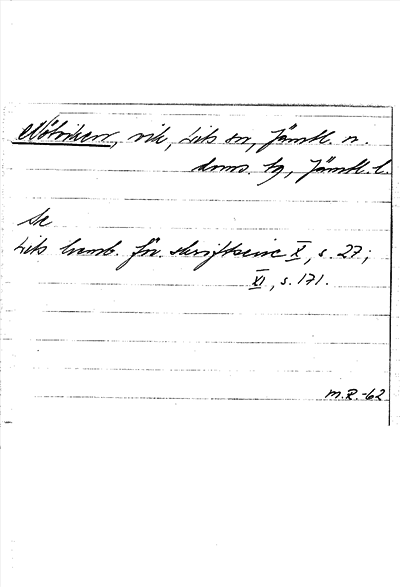 Nötviken, vik, Lits sn, Jämtl. n.
doms. bg, Jämtl. l.
Se
Lits hemb. för. skriftserie X, s. 27;
XI, s. 171.
M.R.-62